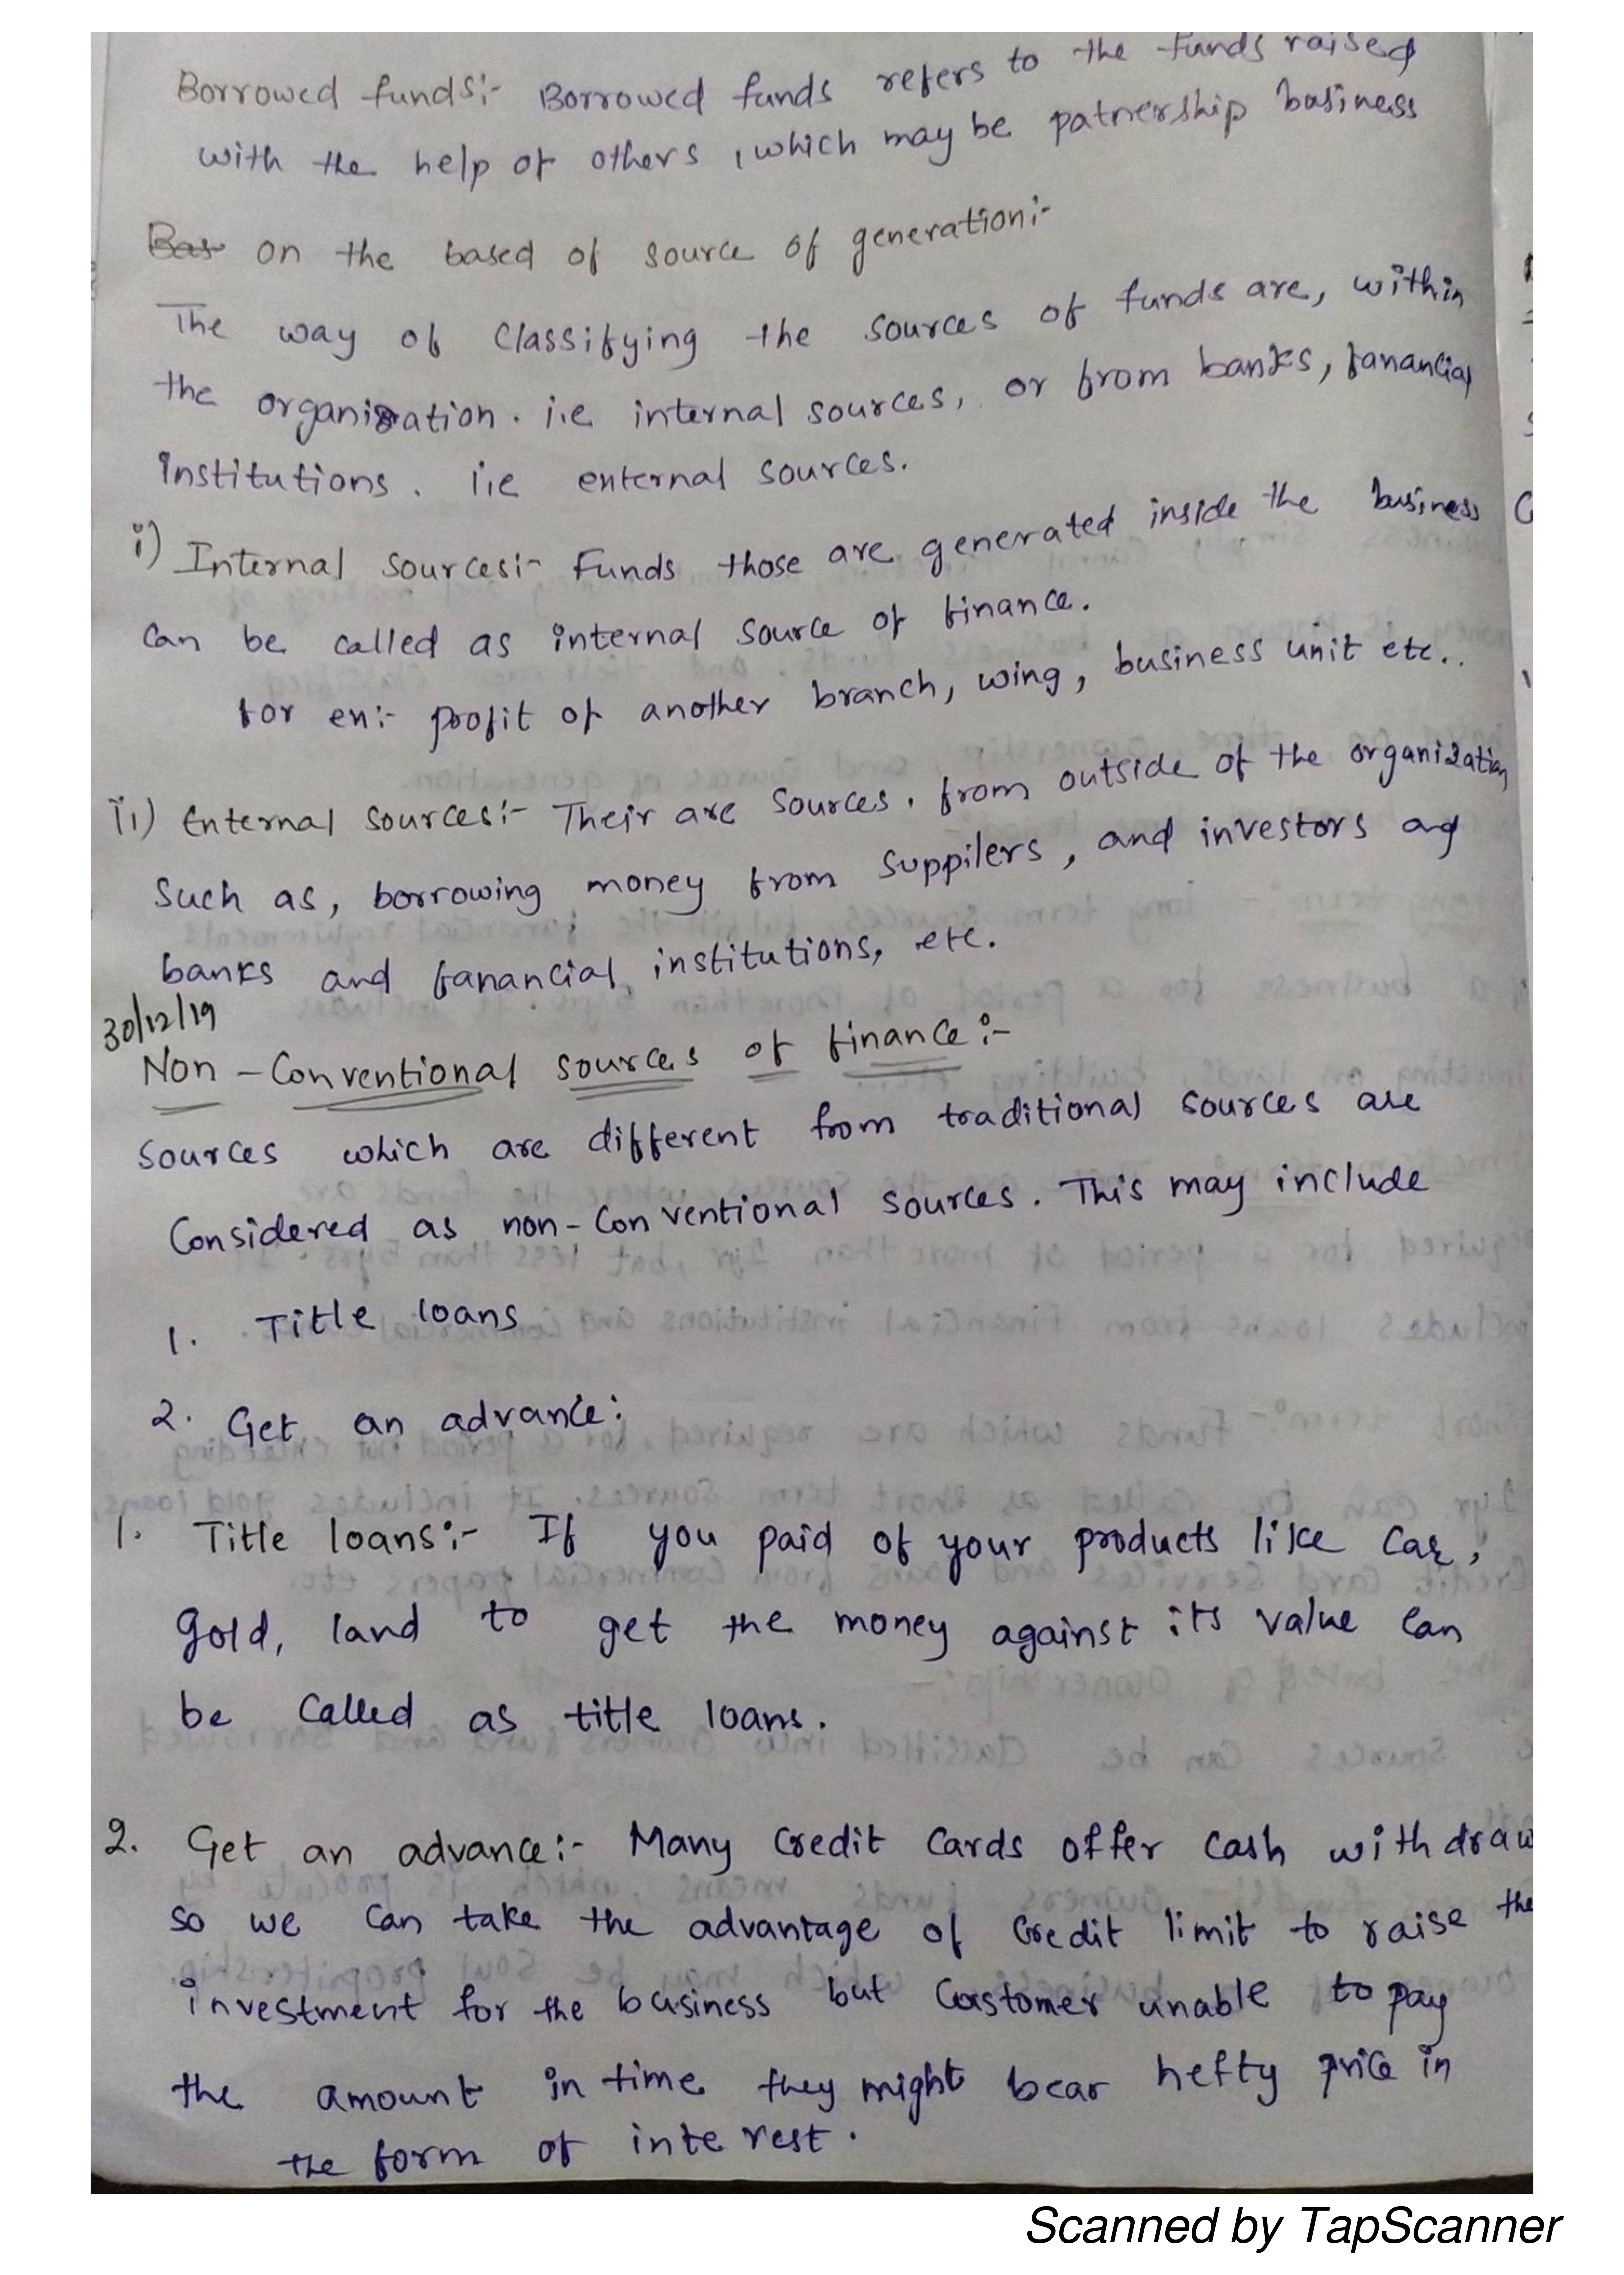 Borrowed funds:- Borrowed funds refers to the funds raised
with the help of others, which may be patnership business
Bas on the based of source of generation:-
The way of classifying the sources of funds are, within
the organization. i.e internal sources, or from banks, fanancial
institutions. i.e enternal sources.
i) Internal sources:- Funds those are generated inside the business
can be called as internal source of finance.
for en:- profit of another branch, wing, business unit etc..
ii) Enternal sources:- Their are sources, from outside of the organization
Such as, borrowing money from suppilers, and investors and
banks and fanancial institutions, etc.
30/12/19
Non-Conventional sources of finance:-
sources which are different from traditional sources are
Considered as non-conventional sources. This may include
1. Title loans
2. Get an advance:
1. Title loans:- If you paid of your products like Car,
gold, land to get the money against its value can
be called as title loans.
2. Get an advance:- Many credit cards offer cash withdraw
so we can take the advantage of credit limit to raise the
investment for the business but customer unable to pay
the amount in time they might bear hefty price in
the form of interest.
Scanned by TapScanner